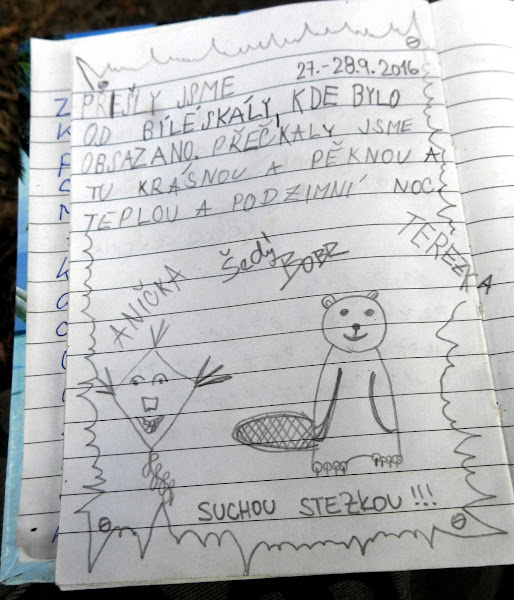 27.-28.9.2016
PŘEŠLY JSME
OD BÍLÉ SKÁLY, KDE BYLO
OBSAZANO. PŘEČKALY JSME
TU KRÁSNOU A PĚKNOU A
TEPLOU A PODZIMNÍ NOC
ANIČKA
Šedý BOBR
TEREZKA
SUCHOU STEZKOU !!!